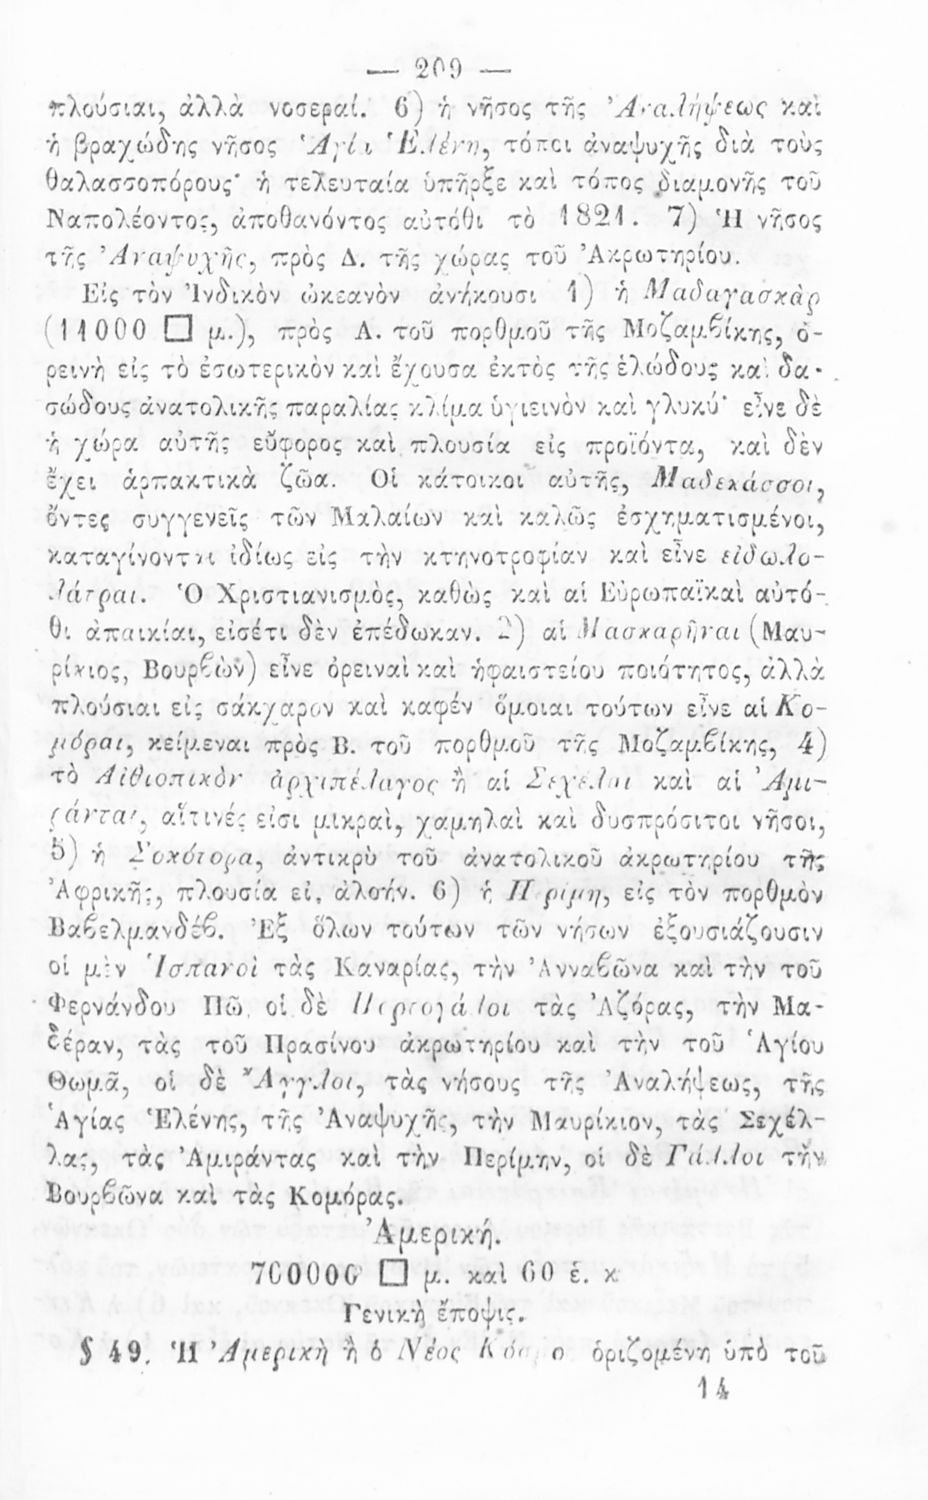 — 209 —
πλούσιαι, ἀλλὰ νοσεραί. 6) ἡ νῆσος τῆς Ἀναλήψεως καὶ
ἡ βραχώδης νῆσος Ἁγία Ἑλένη, τόποι ἀναψυχῆς διὰ τοὺς
θαλασσοπόρους· ἡ τελευταία ὑπῆρξε καὶ τόπος διαμονῆς τοῦ
Ναπολέοντος, ἀποθανόντος αὐτόθι τὸ 1821. 7) Ἡ νῆσος
τῆς Ἀναψυχῆς, πρὸς Δ. τῆς χώρας τοῦ Ἀκρωτηρίου.
Εἰς τὸν Ἰνδικὸν ὠκεανὸν ἀνήκουσι 1) ἡ Μαδαγασκὰρ
(11000 □ μ.), πρὸς Α. τοῦ πορθμοῦ τῆς Μοζαμβίκης, ὀ-
ρεινὴ εἰς τὸ ἐσωτερικὸν καὶ ἔχουσα ἐκτὸς τῆς ἑλώδους καὶ δα-
σώδους ἀνατολικῆς παραλίας κλίμα ὑγιεινὸν καὶ γλυκύ· εἶνε δὲ
ἡ χώρα αὐτῆς εὔφορος καὶ πλουσία εἰς προϊόντα, καὶ δὲν
ἔχει ἁρπακτικὰ ζῶα. Οἱ κάτοικοι αὐτῆς, Μαδεκάσσοι,
ὄντες συγγενεῖς τῶν Μαλαίων καὶ καλῶς ἐσχηματισμένοι,
καταγίνονται ἰδίως εἰς τὴν κτηνοτροφίαν καὶ εἶνε εἰδωλο-
λάτραι. Ὁ Χριστιανισμὸς, καθὼς καὶ αἱ Εὐρωπαϊκαὶ αὐτό-
θι ἀποικίαι, εἰσέτι δὲν ἐπέδωκαν. 2) αἱ Μασκαρῆναι (Μαυ-
ρίκιος, Βουρβὼν) εἶνε ὀρειναὶ καὶ ἡφαιστείου ποιότητος, ἀλλὰ
πλούσιαι εἰς σάκχαρον καὶ καφέν· ὅμοιαι τούτων εἶνε αἱ Κο-
μόραι, κείμεναι πρὸς Β. τοῦ πορθμοῦ τῆς Μοζαμβίκης, 4)
τὸ Αἰθιοπικὸν ἀρχιπέλαγος ἢ αἱ Σεχέλαι καὶ αἱ Ἀμι-
ράνται, αἵτινές εἰσι μικραὶ, χαμηλαὶ καὶ δυσπρόσιτοι νῆσοι,
5) ἡ Σοκότορα, ἀντικρὺ τοῦ ἀνατολικοῦ ἀκρωτηρίου τῆς
Ἀφρικῆς, πλουσία εἰς ἀλοήν. 6) ἡ Περίμη, εἰς τὸν πορθμὸν
Βαβελμανδέβ. Ἐξ ὅλων τούτων τῶν νήσων ἐξουσιάζουσιν
οἱ μὲν Ἱσπανοὶ τὰς Καναρίας, τὴν Ἀνναβῶνα καὶ τὴν τοῦ
Φερνάνδου Πῶ, οἱ δὲ Πορτογάλοι τὰς Ἀζόρας, τὴν Μα-
δέραν, τὰς τοῦ Πρασίνου ἀκρωτηρίου καὶ τὴν τοῦ Ἁγίου
Θωμᾶ, οἱ δὲ Ἄγγλοι, τὰς νήσους τῆς Ἀναλήψεως, τῆς
Ἁγίας Ἑλένης, τῆς Ἀναψυχῆς, τὴν Μαυρίκιον, τὰς Σεχέλ-
λας, τὰς Ἀμιράντας καὶ τὴν Περίμην, οἱ δὲ Γάλλοι τὴν
Βουρβῶνα καὶ τὰς Κομόρας.
Ἀμερική.
700000 □ μ. καὶ 60 ἑ. κ
Γενικὴ ἔποψις.
§ 49. Ἡ Ἀμερικὴ ἢ ὁ Νέος Κόσμος ὁριζομένη ὑπὸ τοῦ
14